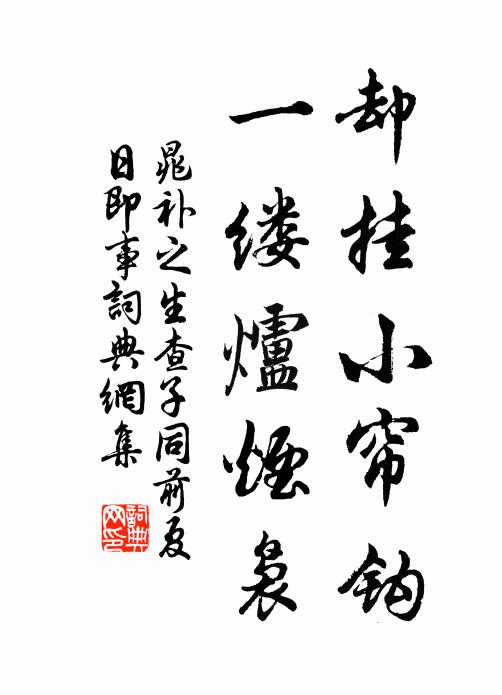 却挂小帘钩
一缕爐煙袅
晁补之生查子同前夏
日即事詞典網集
詞典网印